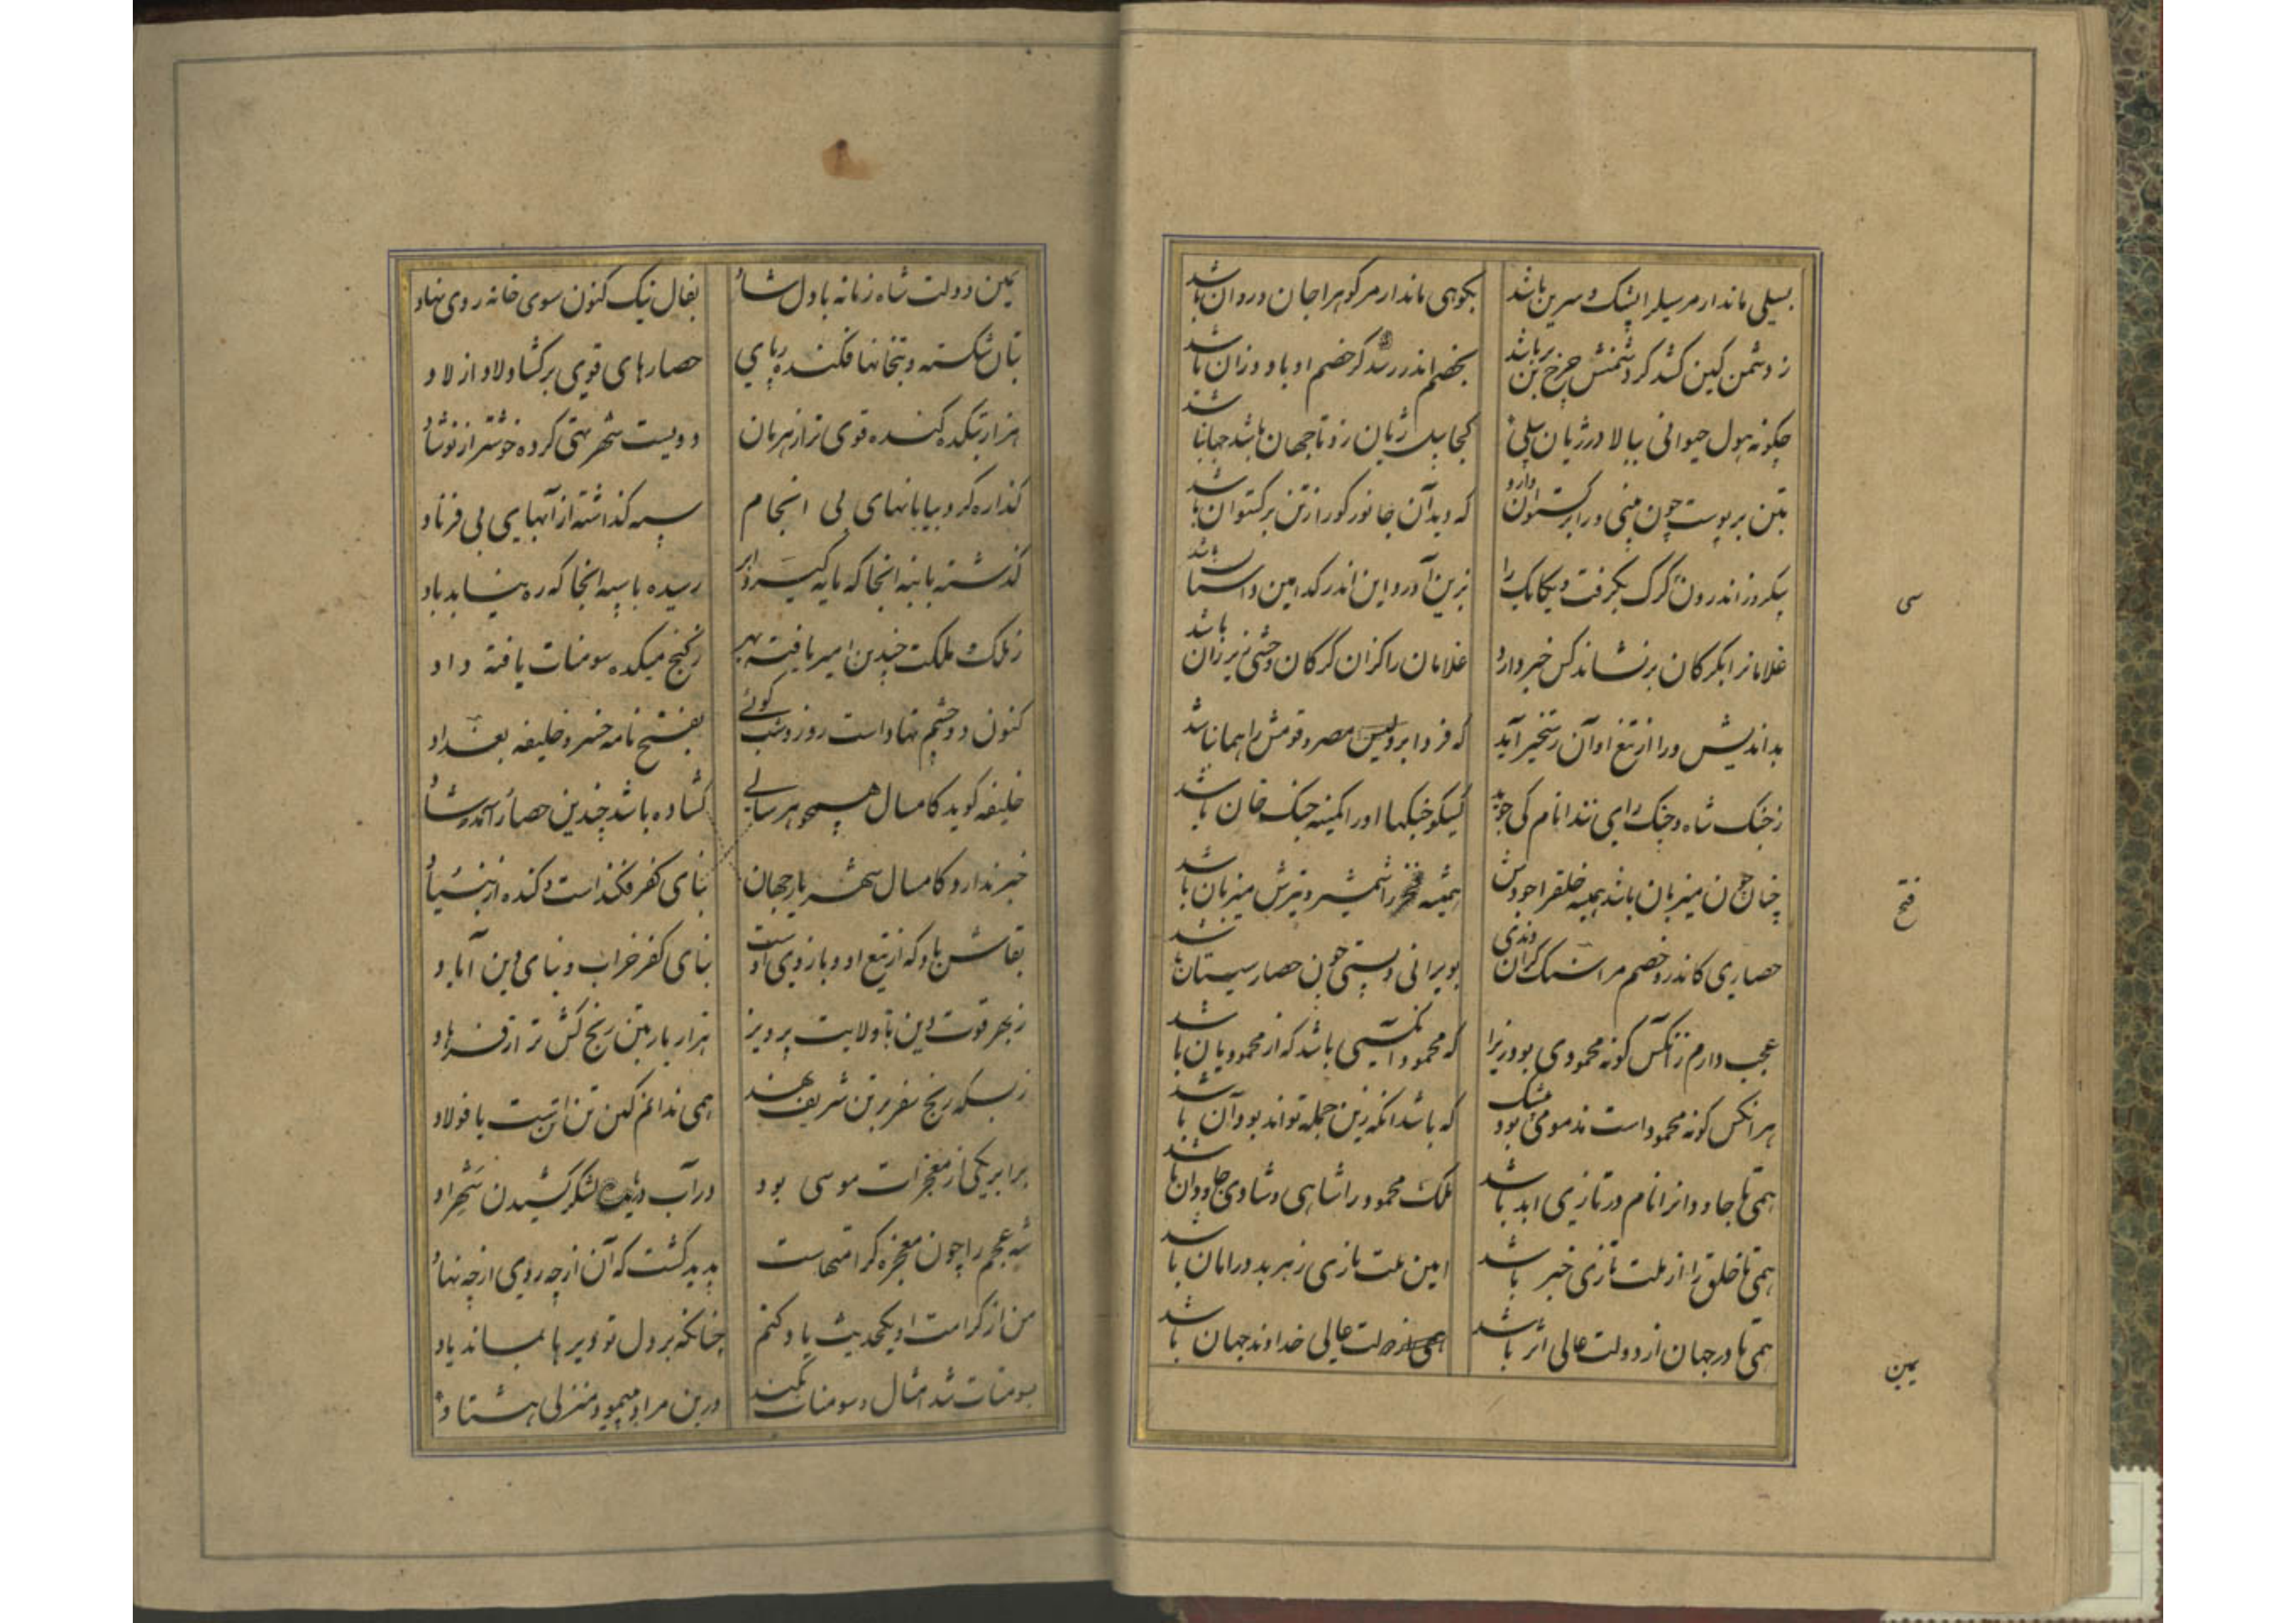 بسیلی ماند ار مر سیلرا پشک و سرین باشد بکوهی ماند ار مر کوهرا جان و روان باشد
ز دشمن کین کشد کر دشمنش چرخ برین باشد بخصم اندر رسد کر خصم او باد وزان باشد
چکونه هول حیوانی ببالا در ژیان پیلی کجا پیل ژیان زو تا جهان باشد جهان باشد
بتن بر پوست چون بینی ورا بر کستوان دارد که دید آن جانور کورا ز تن بر کستوان باشد
بیکروز اندرون کرک بکرفت و یکایک را بزین آورد و این اندر کدامین داستان باشد
غلامانرا بکرکان بر نشاند کس خبر دارد غلامان را کزان کرکان وحشی زیر ران باشد
سی
بداندیش ورا از تیغ او آن رستخیز آید که فردا بر ولیس مصر و قومش را همان باشد
ز جنک شاه و جنک رای نندا نام کی جوید کیسکو جنکها او را کمینه جنک خان باشد
چنان چون میزبان باشد همیشه خلقرا جودش همیشه فخر را شمشیر و تیرش میزبان باشد
فتح
حصاری کاندرو خصم مر او سنک کران دیدی بویرانی و پستی چون حصار سیستان باشد
عجب دارم ز آنکس کو نه محمودی بود زیرا که محمود آنکسی باشد که از محمودیان باشد
هر انکس کو نه محمود است مذمومی بود بیشک که باشد انکه زین جمله تواند بود آن باشد
همی تا جاودانرا نام در تازی ابد باشد ملک محمود را شاهی و شادی جاودان باشد
همی تا خلق را از ملت تازی خبر باشد امین ملت تازی ز هر بد در امان باشد
همی تا در جهان از دولت عالی اثر باشد همی از دولت عالی خداوند جهان باشد
یمین
یمین دولت شاه زمانه با دل شاد بفال نیک کنون سوی خانه روی نهاد
بتان شکسته و بتخانها فکنده ز پای حصارهای قوی بر کشاد لاد از لاد
هزار بتکده کنده قوی تر از هرمان دویست شهر تهی کرده خوشتر از نوشاد
کذاره کرد بیابانهای بی انجام سپه کذاشته از آبهایی بی فرناد
کذشته با بنه انجا که مایه کیرد ابر رسیده با سپه انجا که ره نیابد باد
ز ملک و ملکت چندین امیر یافته بهر ز کنج میکده سومنات یافته داد
کنون دو چشم نهاد است روز و شب کوئی بفتح نامه خسرو خلیفه بغداد
خلیفه کوید کامسال همچو هر سالی کشاده باشد چندین حصار و آمده شاد
خبر ندارد کامسال شهریار جهان بنای کفر فکند است و کنده از بنیاد
بقاش باد که از تیغ او و بازوی اوست بنای کفر خراب و بنای دین آباد
ز بهر قوت دین با ولایت پرویز هزار بار بتن رنج کش تر از فرهاد
ز بسکه رنج سفر بر تن شریف نهند همی ندانم کین تن تنست یا فولاد
برابر یکی از معجزات موسی بود در آب دریا لشکر کشیدن شهراد
شه عجم را چون معجزه کرامتهاست پدید کشت که آن از چه روی از چه نهاد
من از کرامت او یکحدیث یاد کنم چنانکه بر دل تو دیرها بماند یاد
بسومنات شد امثال و سومنات بکند در ین مراد بپیمود منزلی هشتاد